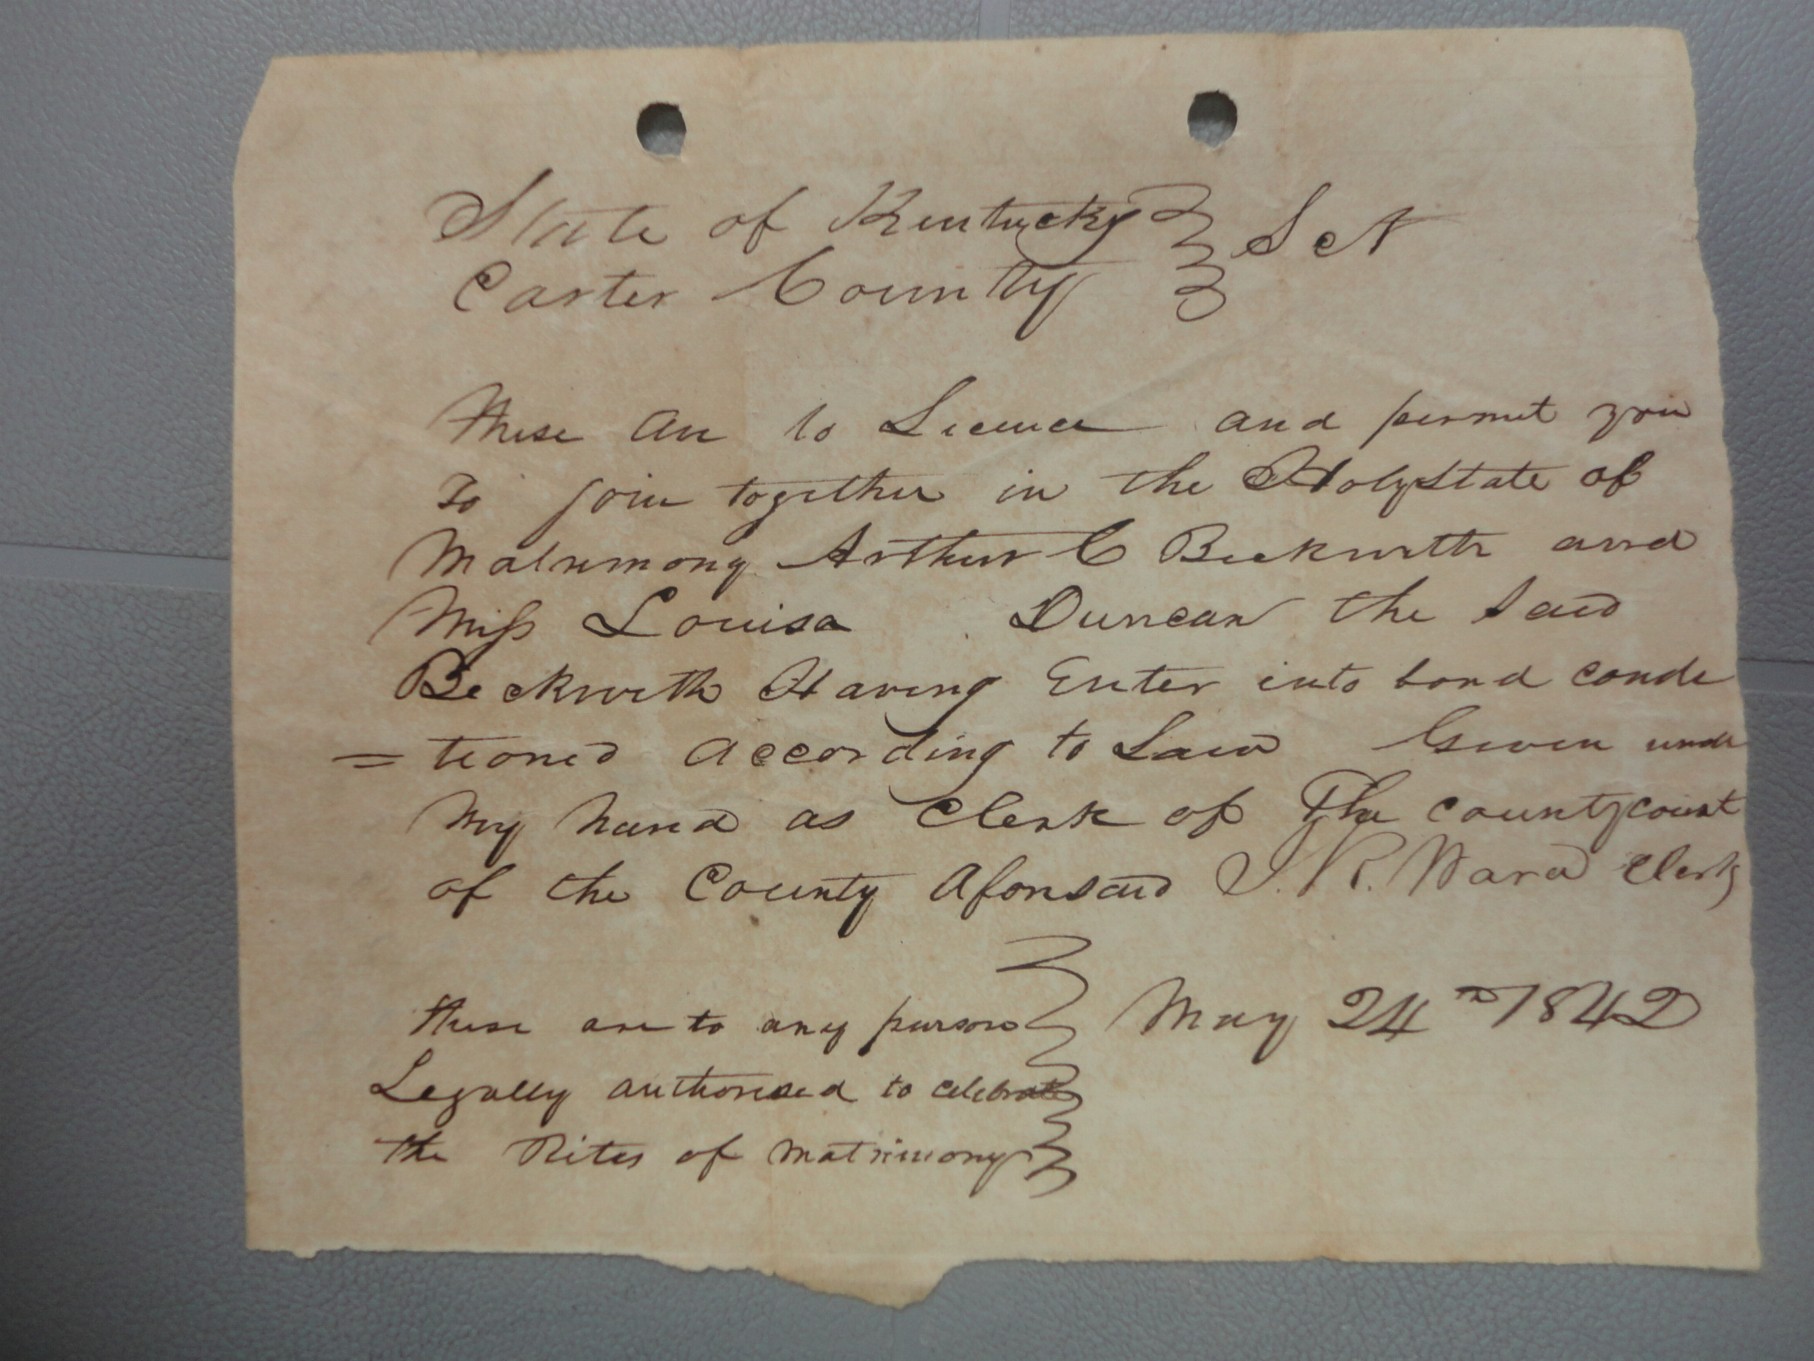 State of Kentucky } Sct
Carter County }
these are to Licence and permit you
To join together in the Holy State of
Matrimony Arthur C Beckwith and
Miss Louisa Duncan the said
Beckwith Having Enter into bond conde
= tioned according to Law Given unde
my hand as Clerk of The county court
of the County Aforesaid J. R. Ward Clerk
May 24th 1842
these are to any person
Legally authorised to celebrate
the Rites of matrimony